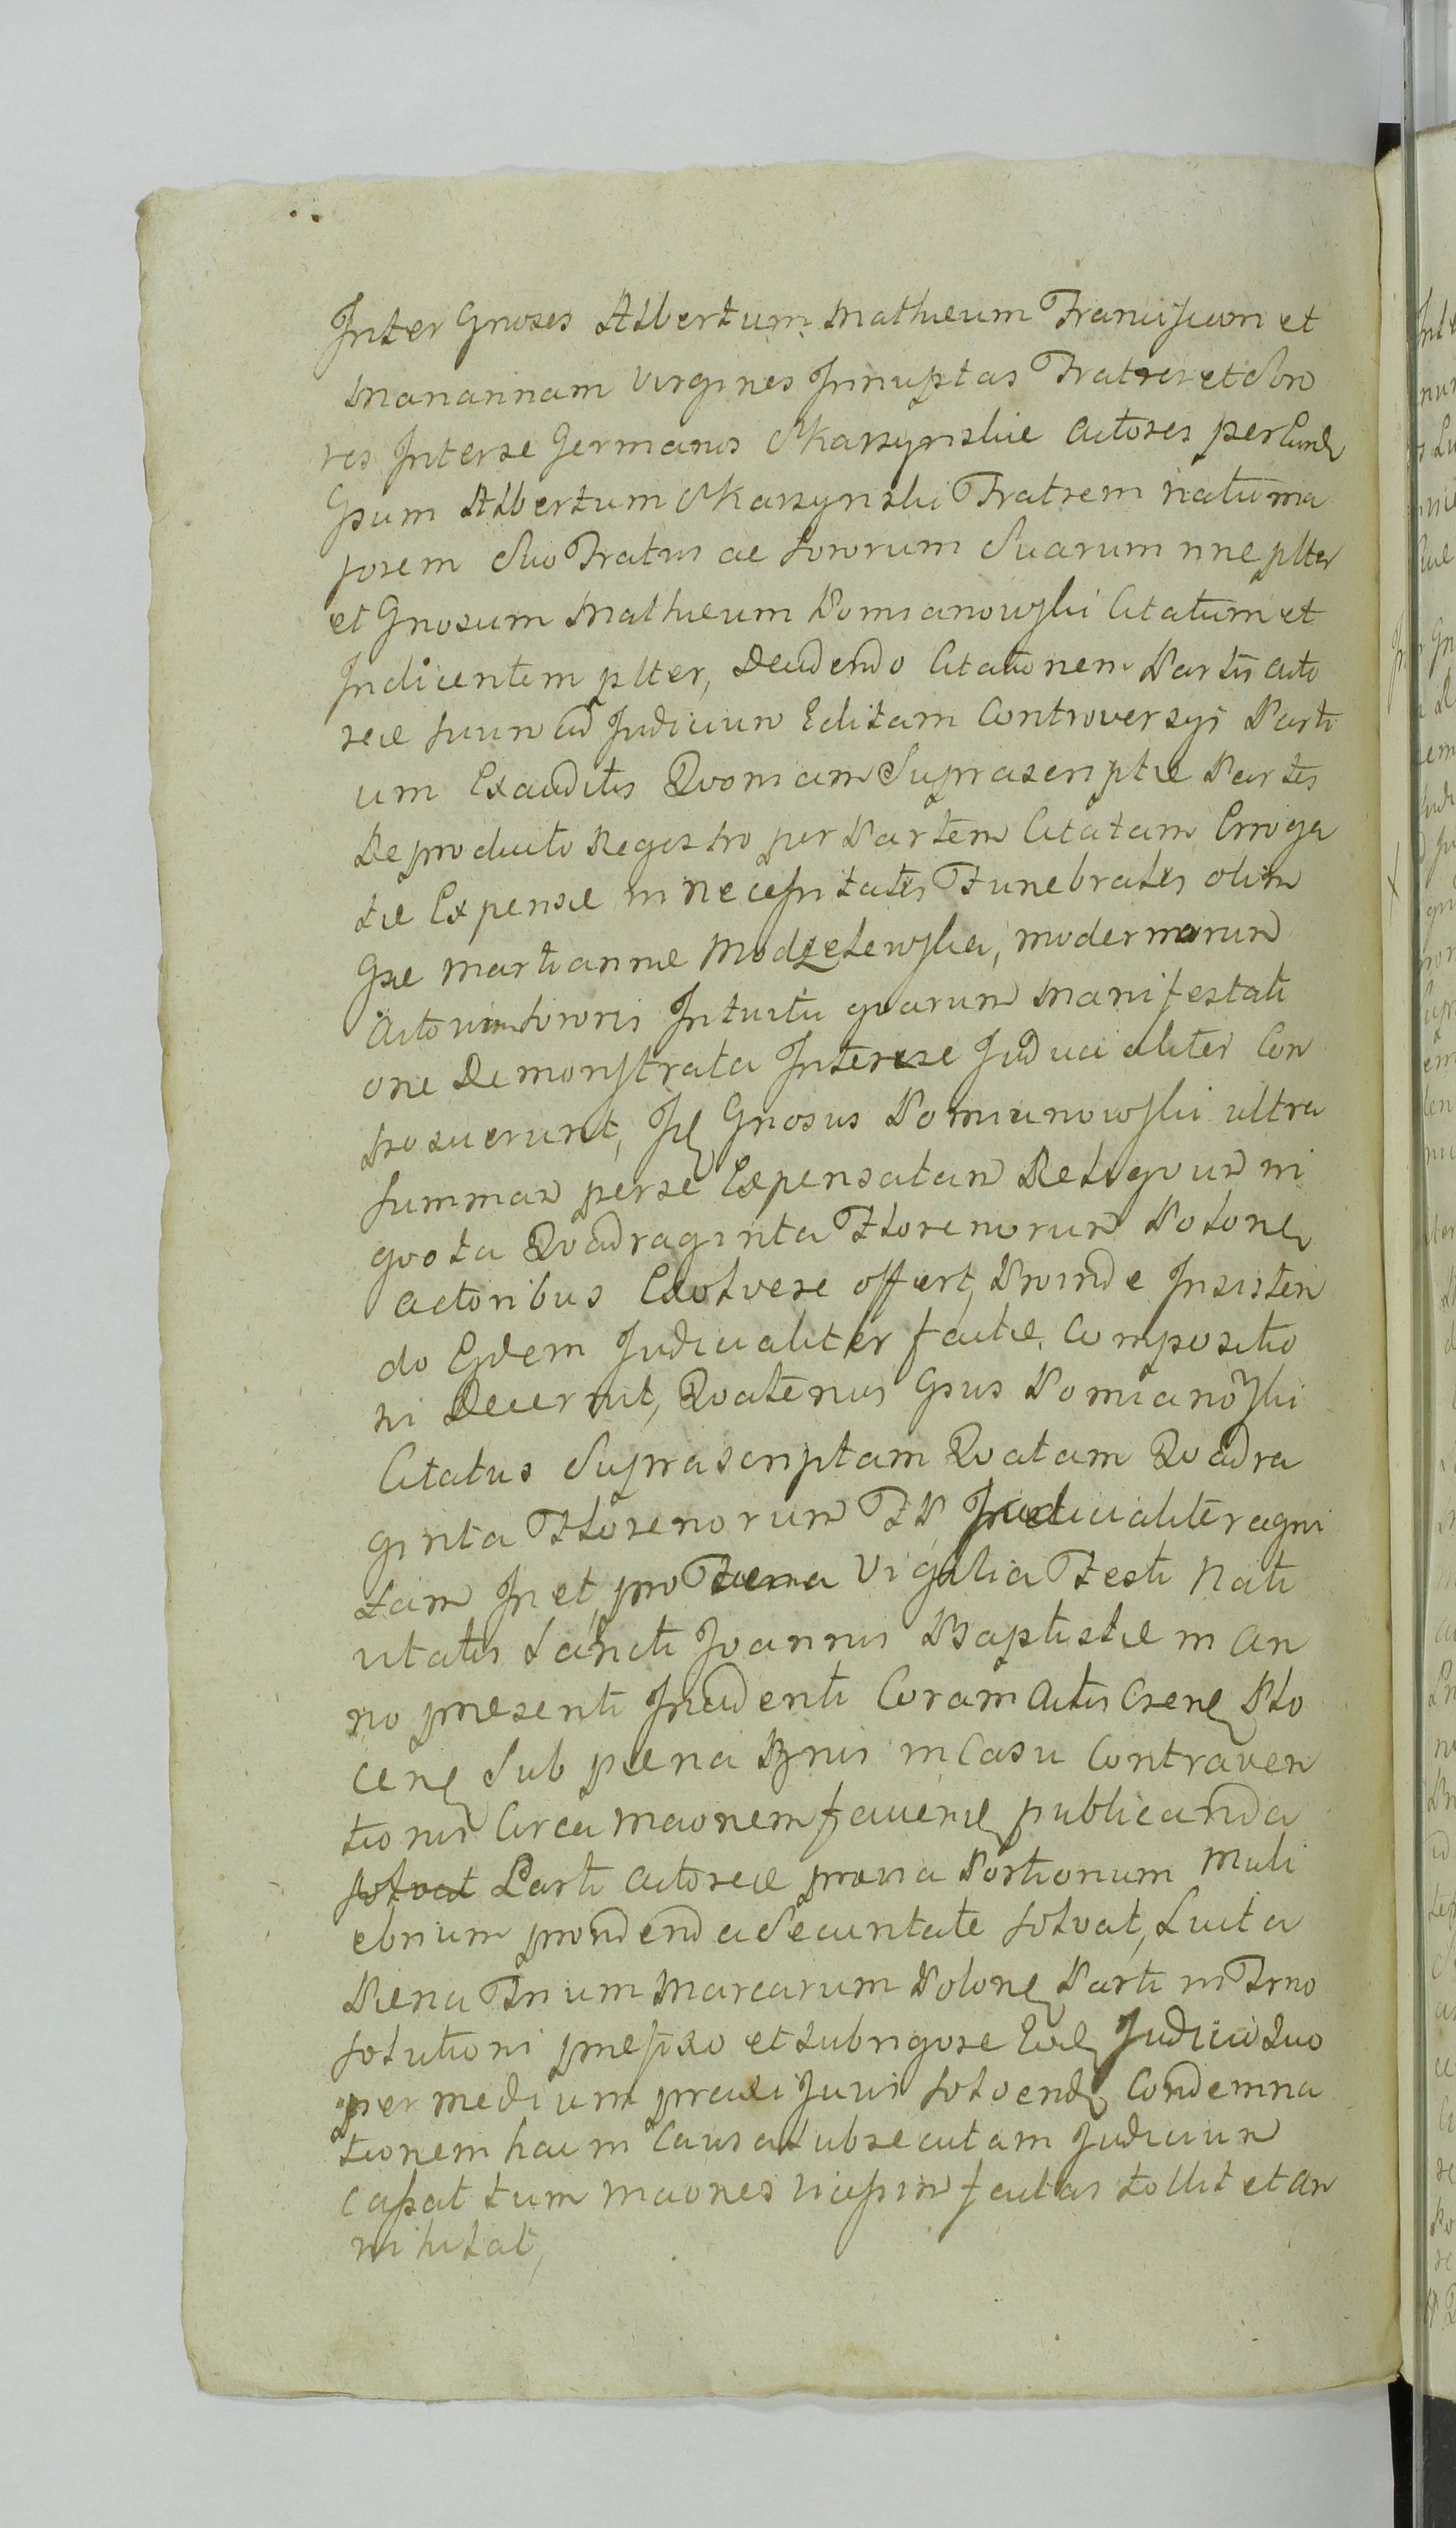 Inter Gnoses Albertum Mathæum Franciscum et
Mariannam Virgines Innuptas Fratres et Soro
res Interse Germanos Skarzynskie Actores per Eund
Gsum Albertum Skarzynski Fratrem natu ma
jorem Suo Fratris ac Sororum Suarum nne plter
et Gnosum Mathæum Pomianowski Citatum et
Indicentem plter, Decidendo Citationem Partis Acto
reæ suum ad Judicium Editam Controversys Parti
um Exauditis Quoniam Suprascriptæ Partes
De producto Regestro per Partem Citatam Erroga
tæ Expensæ in necessitates Funebrales olim
Gsæ Martiannæ Modzelewska, modernorum
Actorum Sororis Intuitu quarum Manifestati
one Demonstrata Interese Judicialiter Con
posuerunt, Id Gnosus Pomianowski ultra
summam perse Expensatam Reliquum in
quota Quadraginta Florenorum Polone
Actoribus Exolvere offert, Proinde Insisten
do Ejdem Judicialiter factæ Compositio
ni Decernit, Quatenus Gsus Pomianoski
Citatus Suprascriptam Quatam Quadra
ginta Florenorum FP Judicialiter agni
tam In et pro Feria Vigilia Festi Nati
vitatis Sancti Joannis Baptistæ in An
no præsenti Incidenti Coram Actis Csene Plo
cene Sub pæna Bnis in Casu Contraven
tionis Circa maonem facien publicanda
solvat Parti Actoreæ prævia Portionum Muli
ebrium providenda Securitate solvat, Luita
Pæna Trium Marcarum Polone Parti in Trno
solutioni præfixo et sub rigore Eod Judicio Suo
per medium prævii Juris solvend Condemna
tionem hac in Causa Subsecutam Judicium
Cassat tum maones vicissim factas tollit et An
nihilat,